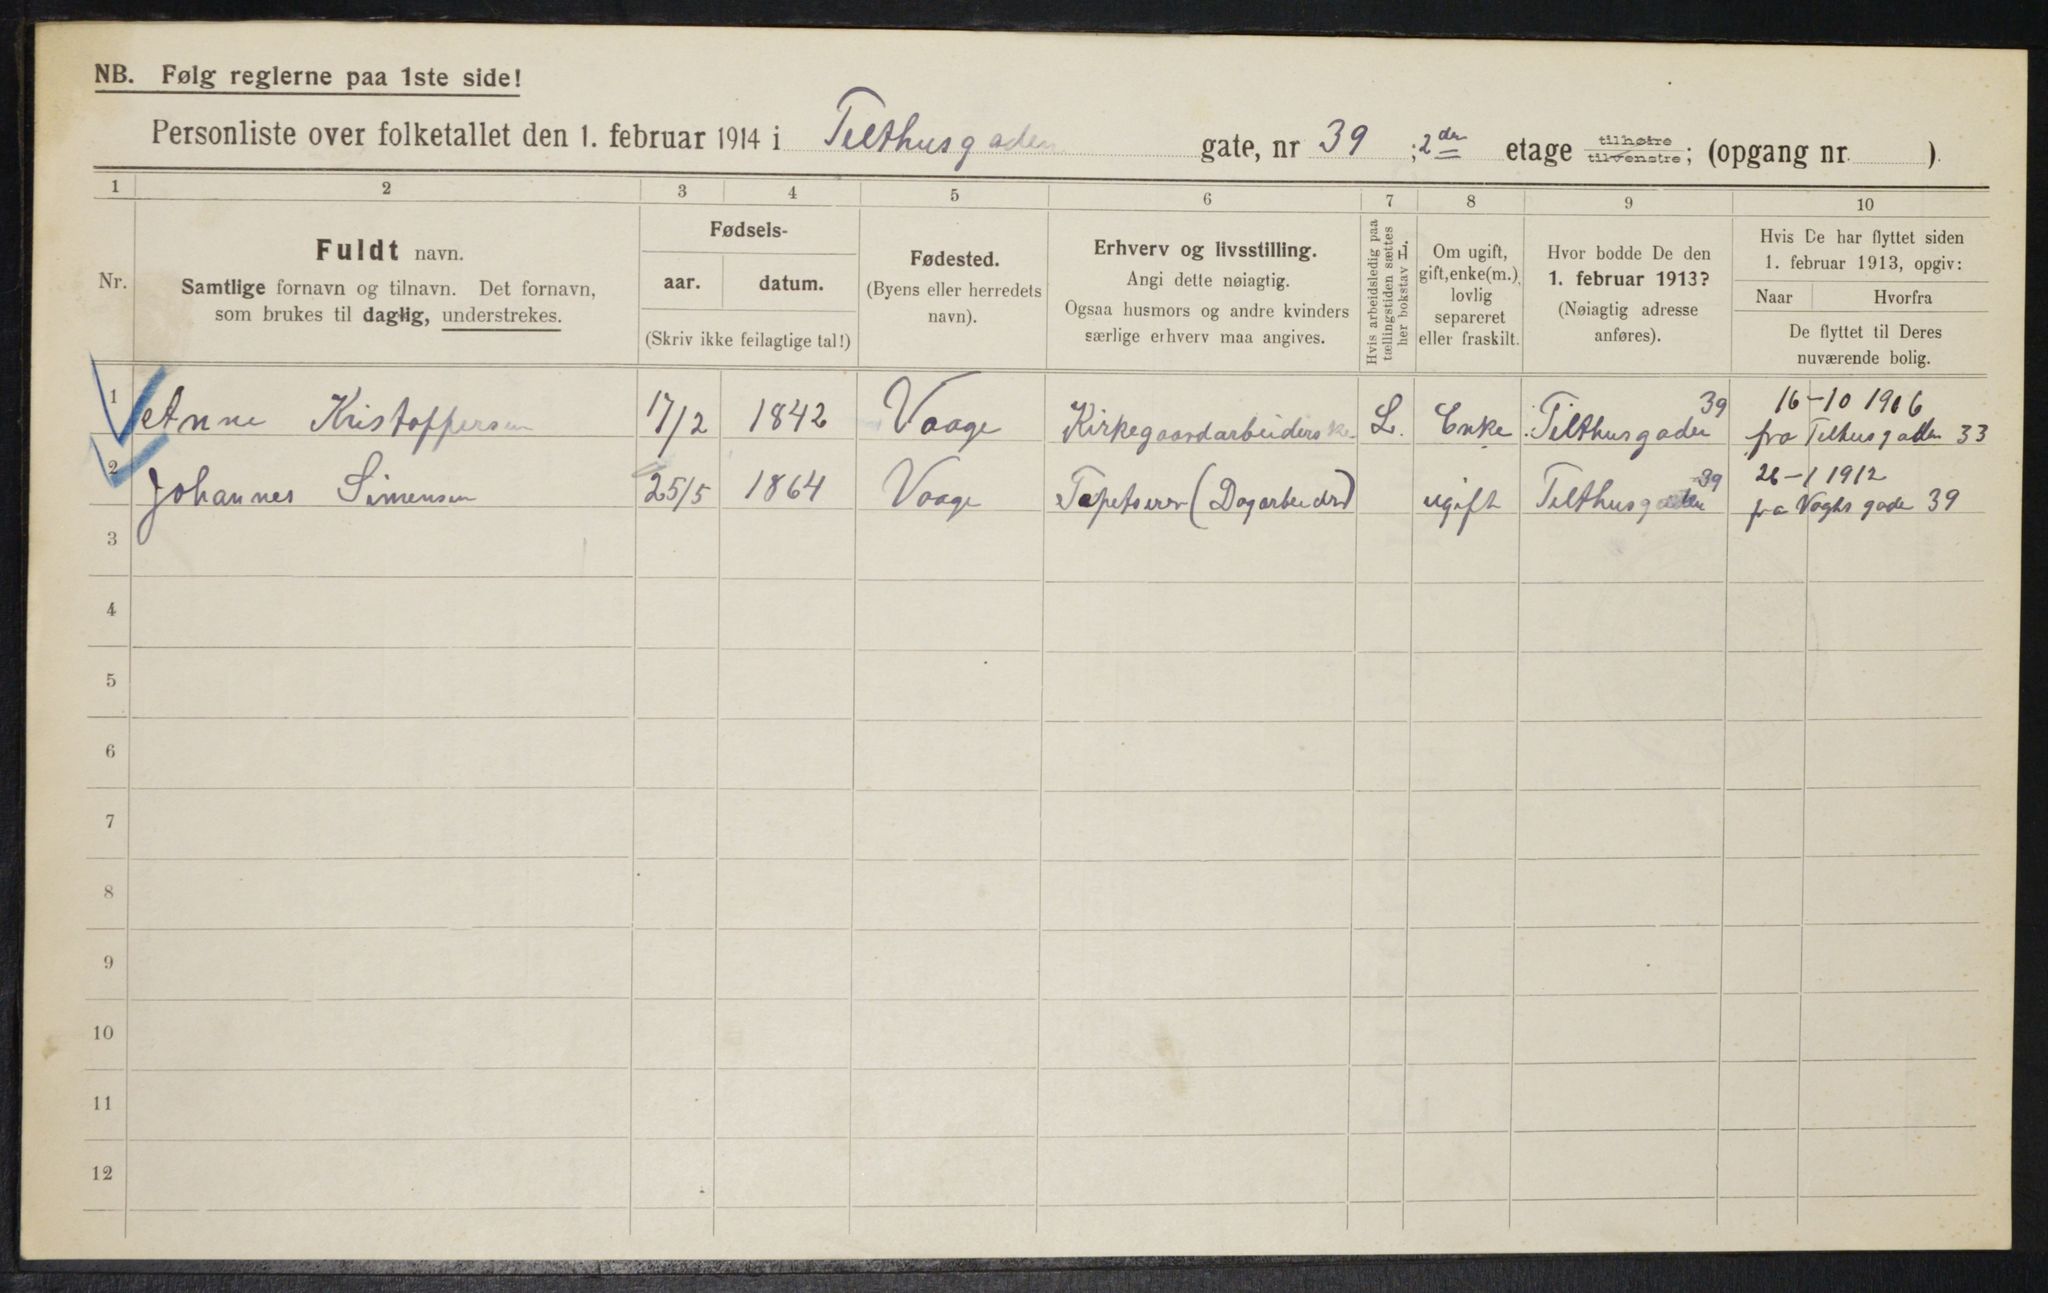 NB. Følg reglerne paa 1ste side!
Personliste over folketallet den 1. februar 1914 i Telthusgaden gate, nr 39 ; 2den etage tilhøire tilvenstre; (opgang nr. ).
1 2 3 4 5 6 7 8 9 10
Nr.
Fuldt navn.
Samtlige fornavn og tilnavn. Det fornavn,
som brukes til daglig, understrekes.
Fødsels-
aar. datum.
(Skriv ikke feilagtige tal!)
Fødested.
(Byens eller herredets
navn).
Erhverv og livsstilling.
Angi dette nøiagtig.
Ogsaa husmors og andre kvinders
særlige erhverv maa angives.
Hvis arbeidsledig paa
tællingstiden sættes
her bokstav L.
Om ugift,
gift, enke(m.),
lovlig
separeret
eller fraskilt.
Hvor bodde De den
1. februar 1913?
(Nøiagtig adresse
anføres).
Hvis De har flyttet siden
1. februar 1913, opgiv:
Naar Hvorfra
De flyttet til Deres
nuværende bolig.
1 Anne Kristoffersen 17/2 1842 Vaage Kirkegaardarbeiderske L. Enke Telthusgaden 39 16-10 1906
fra Telthusgaden 33
2 Johannes Simensen 25/5 1864 Vaage Tapetserer (Dagarbeider) ugift Telthusgaden 39 26-1 1912
fra Vogts gade 39
3
4
5
6
7
8
9
10
11
12